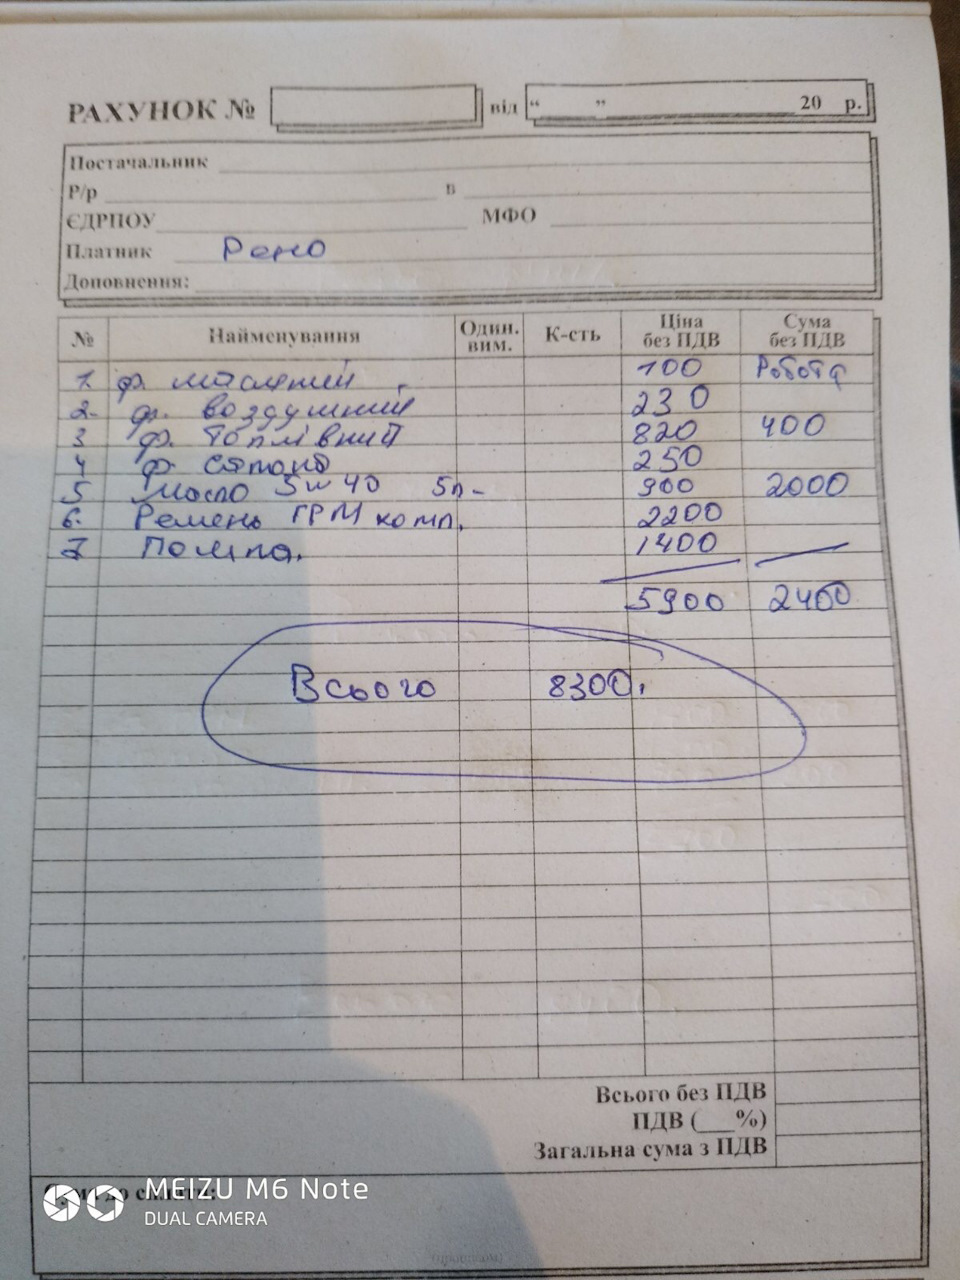 РАХУНОК № від “ ” 20 р.
Постачальник
Р/р в
ЄДРПОУ МФО
Платник Рено
Доповнення:
№ Найменування Один. вим. К-сть Ціна без ПДВ Сума без ПДВ
1. ф. масляний 100 Робота
2. ф. воздушний 230
3 ф. топлівний 820 400
4 ф. салона 250
5 Масло 5w40 5л- 900 2000
6. Ремень ГРМ комп. 2200
7 Помпа. 1400
5900 2400
Всього 8300.
Всього без ПДВ
ПДВ (___%)
Загальна сума з ПДВ
MEIZU M6 Note
DUAL CAMERA